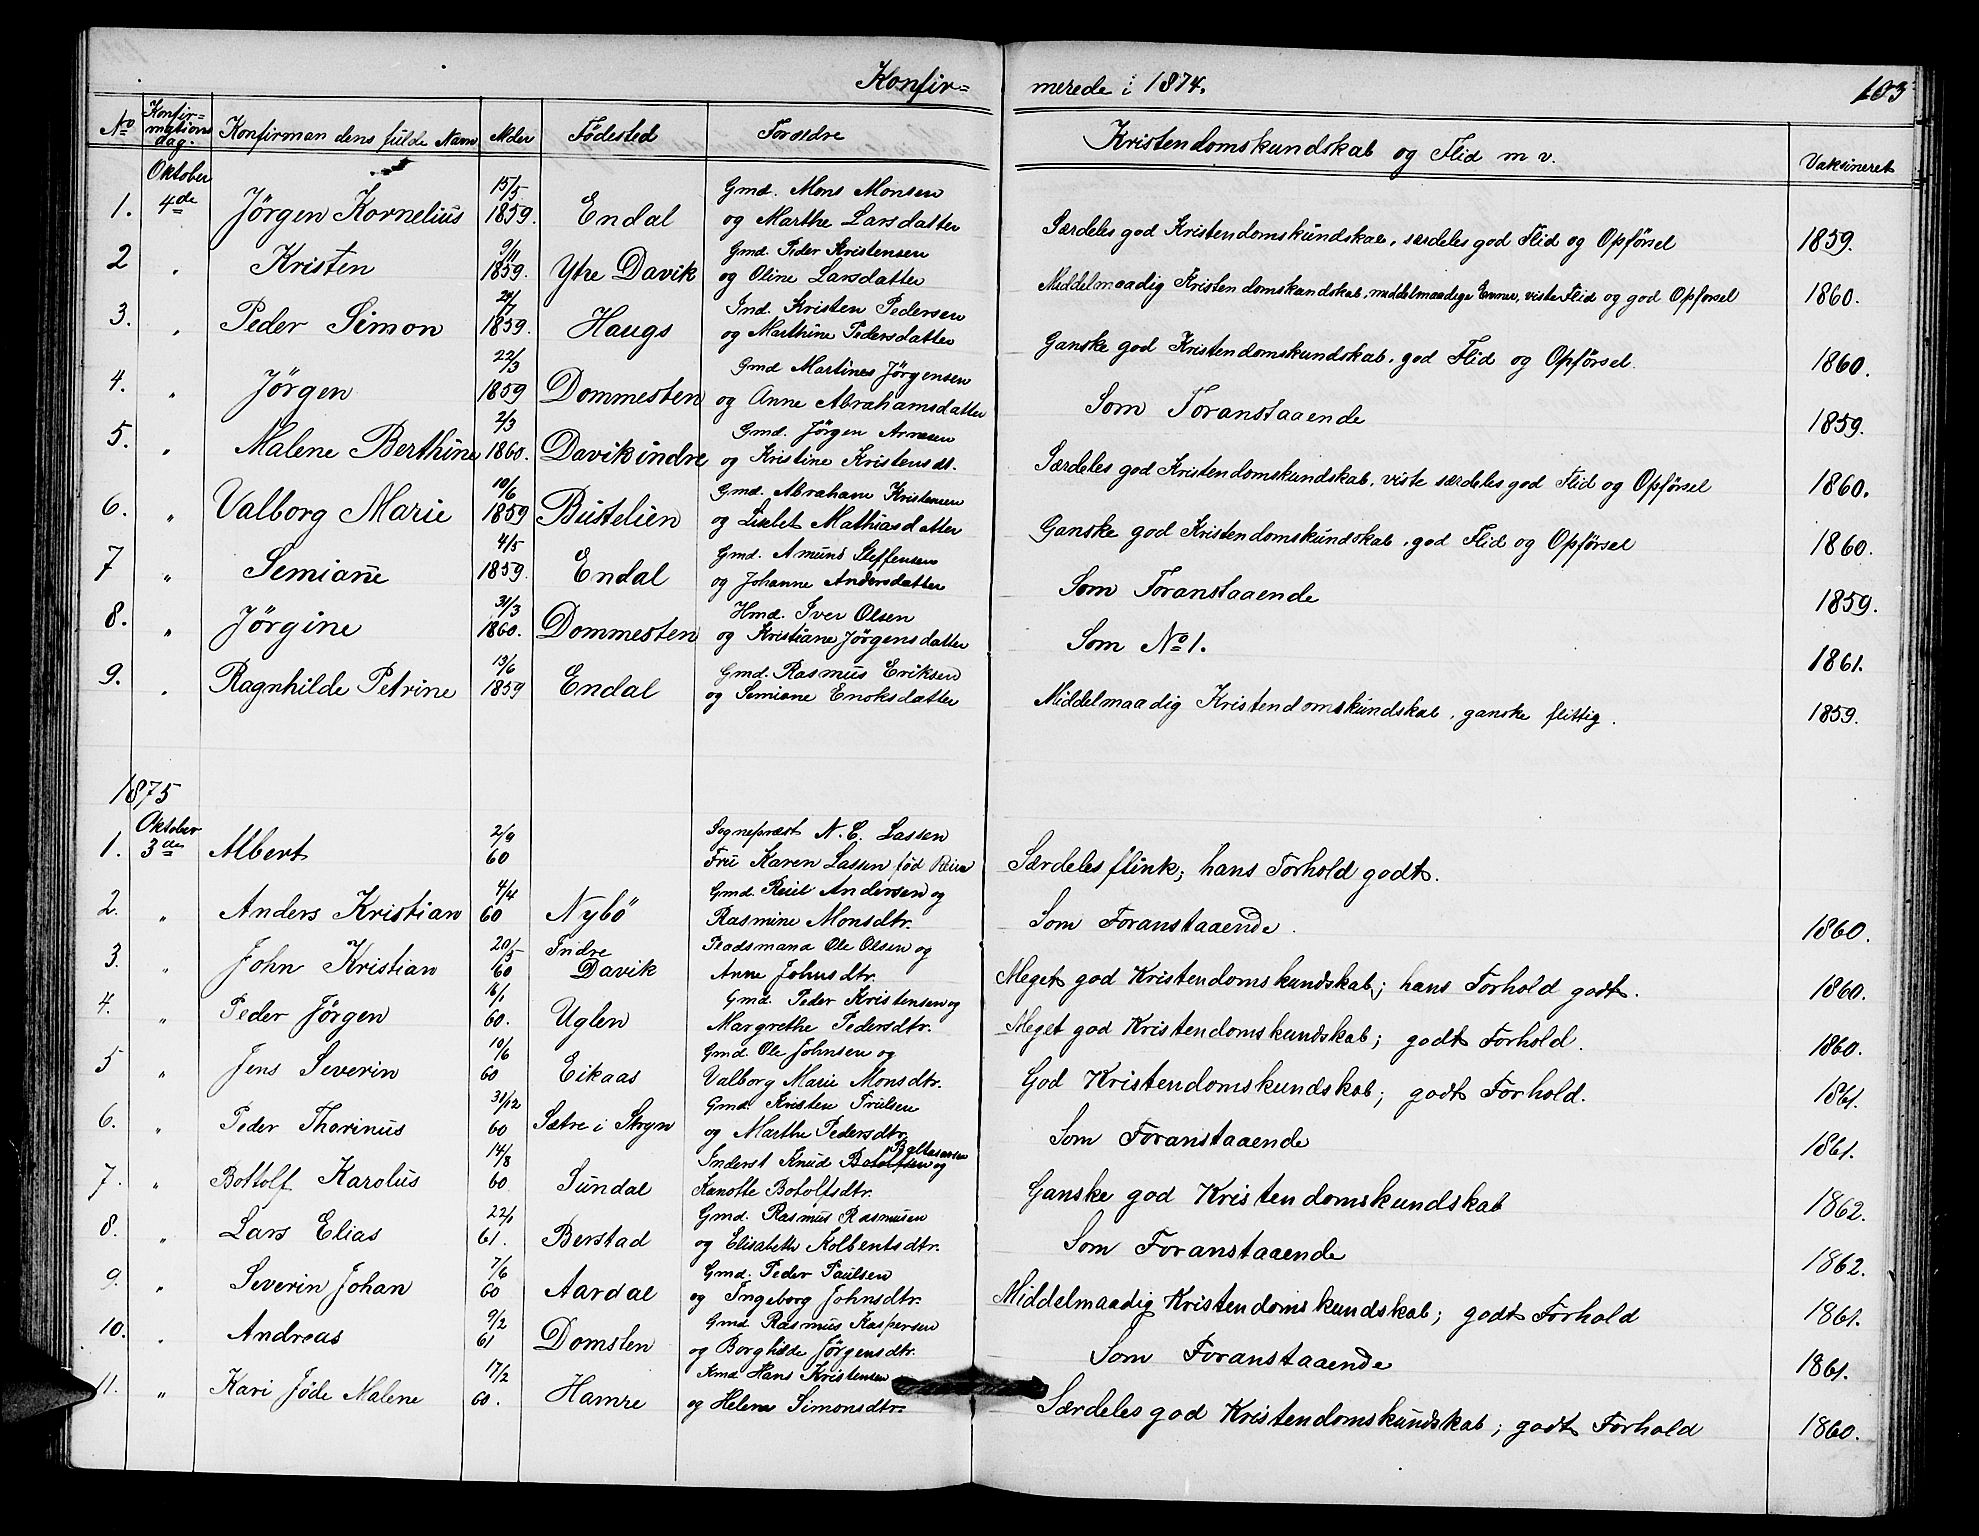 Konfir= merede i 1874. 103
No Konfir=mations dag. Konfirmandens fulde Navn Alder Fødested Forældre Kristendomskundskab og Flid m v. Vaksineret
Oktober 15/5 Gmd. Mons Monsen
1. 4de Jörgen Kornelius 1859. Endal og Marthe Larsdatter Særdeles god Kristendomskundskab, særdeles god Flid og Opförsel 1859.
9/11 Gmd. Peder Kristensen
2 " Kristen 1859. Ytre Davik og Oline Larsdatter Middelmaadig Kristendomskundskab, middelmaadige Evner, viste Flid og god Opförsel 1860.
Ind. Kristen Pedersen
3. " Peder Simon 1859. Haugs og Marthine Pedersdatter Ganske god Kristendomskundskab, god Flid og Opförsel. 1860.
22/3 Gmd Martines Jörgensen
4. " Jörgen 1859 Dommesten og Anne Abrahamsdatter Som Foranstaaende 1859.
2/3 Gmd. Jörgen Arnesen
5. " Malene Berthine 1860. Davik indre og Kristine Kristensdt. Særdeles god Kristendomskundskab, viste særdeles god Flid og Opförsel 1860.
10/6 Gmd. Abraham Kristensen
6. " Valborg Marie 1859 Bustelien og Lisbet Mathiasdatter Ganske god Kristendomskundskab, god Flid og Opförsel 1860.
4/5 Gmd. Amund Steffensen
7 " Semiane 1859. Endal og Johanne Andersdatter Som Foranstaaende 1859.
31/3 Hmd. Iver Olsen
8. " Jörgine 1860. Dommesten og Kristiane Jörgensdatter Som No 1. 1861.
13/6 Gmd. Rasmus Eriksen
9. " Ragnhilde Petrine 1859 Endal og Semiane Enoksdatter Middelmaadig Kristendomskundskab, ganske flittig. 1859.
1875
Oktober 2/9 Sognepræst N. C. Lassen
1. 3die Albert 60 Fru Karen Lassen föd Særdeles flink; hans Forhold godt.
4/4 Gmd. Andersen og
2. " Anders Kristian 60 Nybö Rasmine Monsdtr. Som Foranstaaende. 1860.
20/5 Indre Pladsmand Ole Olsen og
3. " John Kristian 60 Davik Anne Johnsdtr. Meget god Kristendomskundskab; hans Forhold godt. 1860.
16/1 Gmd. Peder Kristensen og
4. " Peder Jörgen 60. Uglen Margrethe Pedersdtr. Meget god Kristendomskundskab; godt Forhold. 1860.
10/6 Gmd. Ole Johnsen og
5 " Jens Severin 60 Eikaas Valborg Marie Monsdtr. God Kristendomskundskab; godt Forhold. 1861.
31/12 Gmd. Kristen
6. " Peder Thorinus 60 Sætre i Stryn og Marthe Pedersdtr. Som Foranstaaende 1861.
14/8 Inderst Knud Botolfsen og Baltasarsen
7. " Bottolf Karolus 60 Sundal Botolfsdtr. Ganske god Kristendomskundskab 1862.
22/1 Gmd. Rasmus Rasmusen
8. " Lars Elias 61. Berstad og Elisabeth Kolbentsdtr. Som Foranstaaende 1862.
7/6 Gmd. Peder Paulsen
9. " Severin Johan 60 Aardal og Ingeborg Johnsdtr. Middelmaadig Kristendomskundskab; godt Forhold 1861.
9/2 Gmd Rasmus Kaspersen
10. " Andreas 61 Domsten og Borghilde Jörgensdtr. Som Foranstaaende 1861.
17/2 Hans Kristensen
11. " Kari Jöde Malene 60. Hamre og Helene Simonsdtr. Særdeles god Kristendomskundskab; godt Forhold 1860.